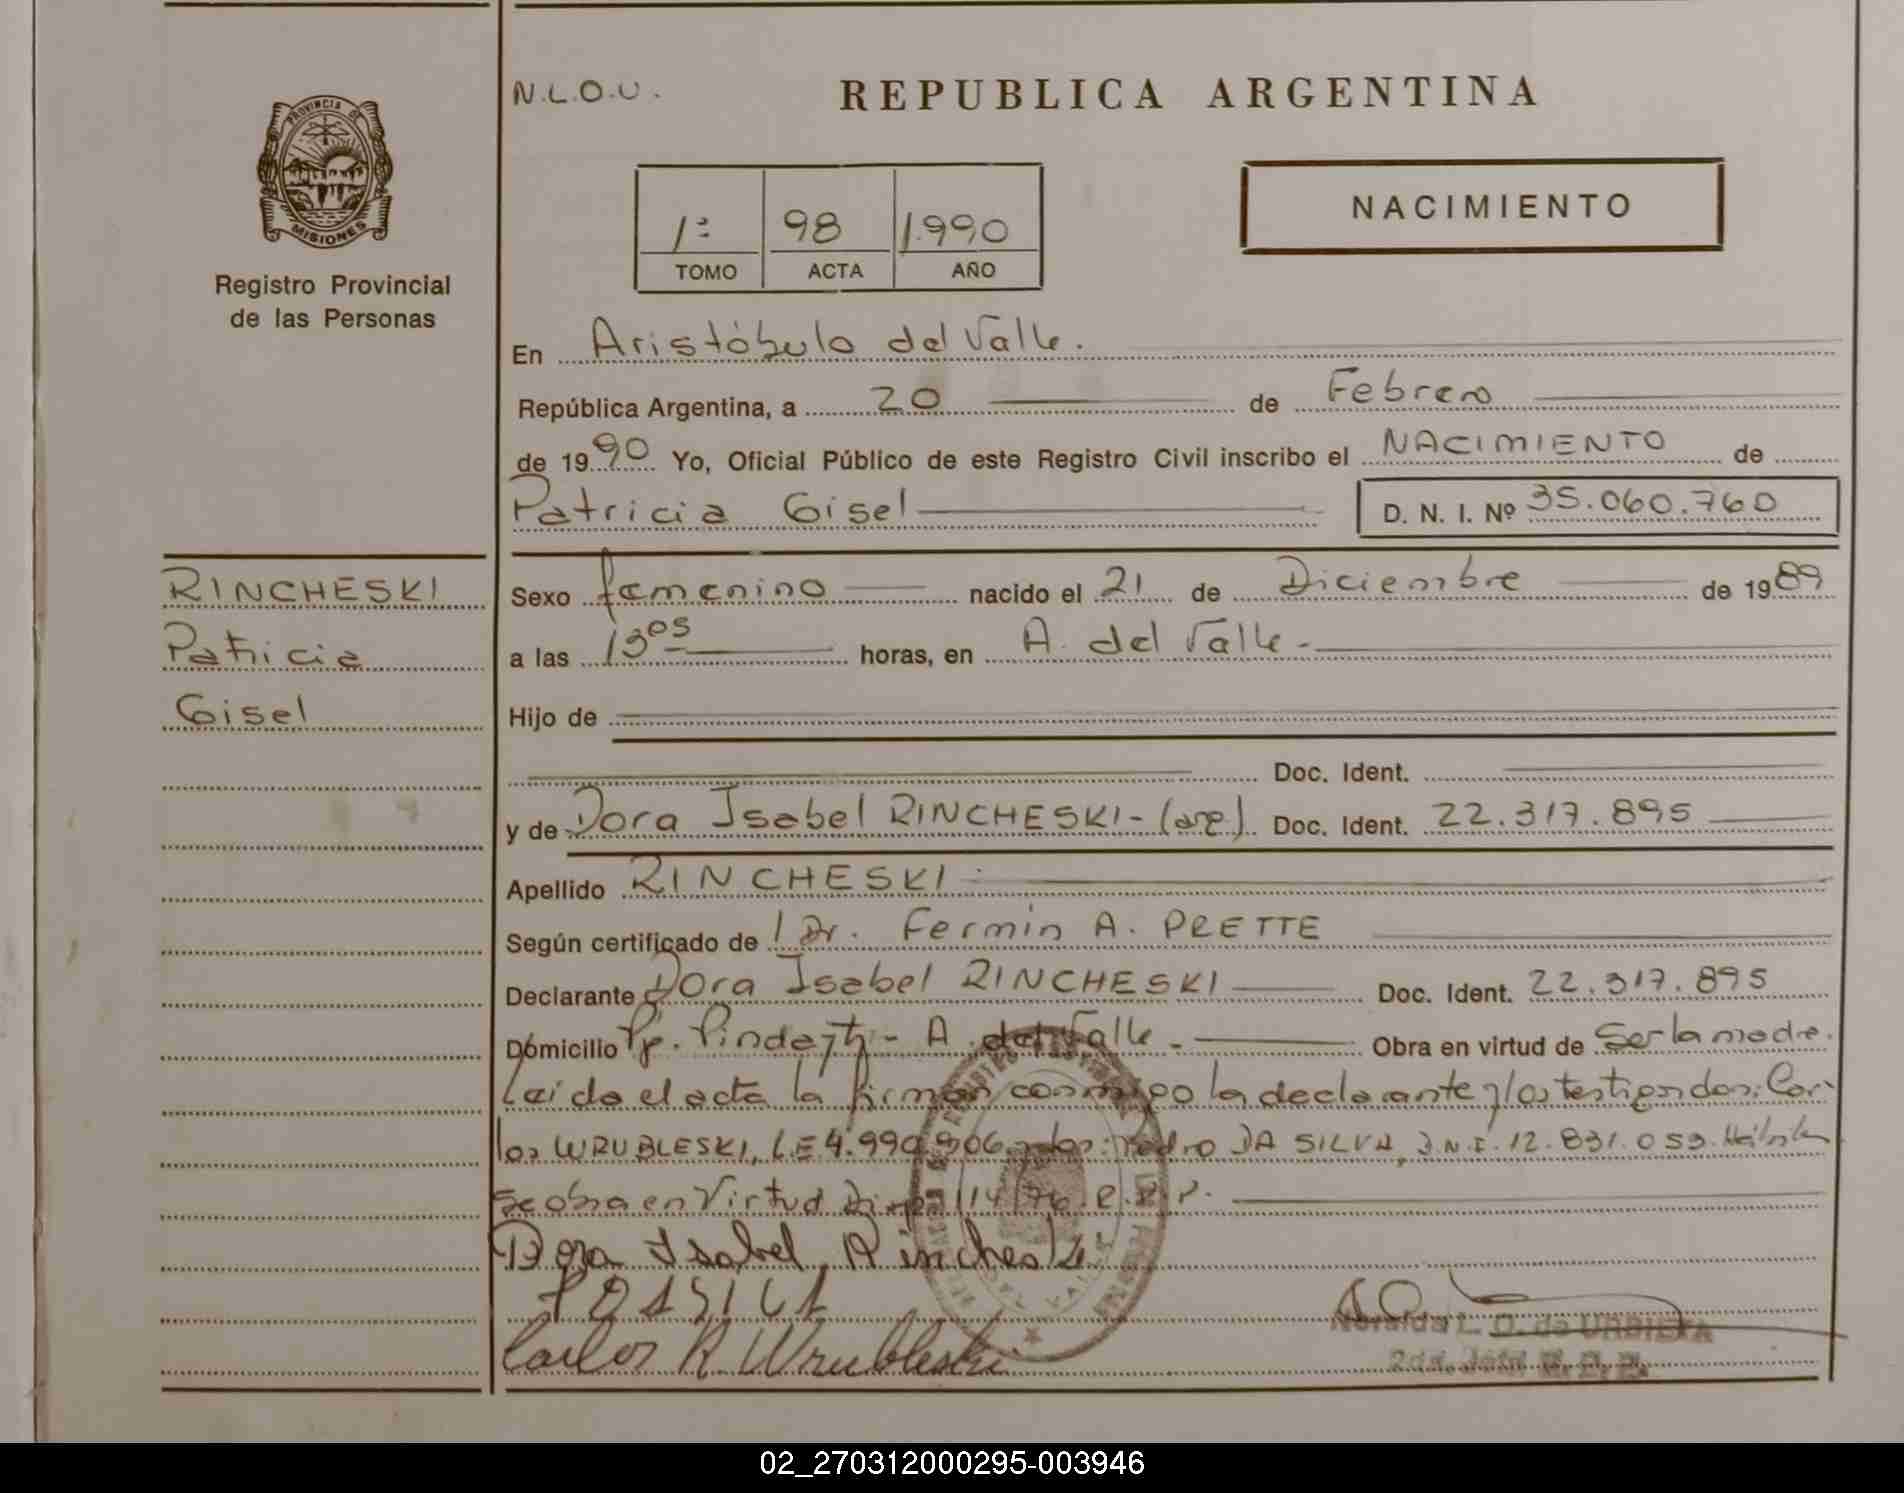 N.L.O.U.
REPUBLICA ARGENTINA
PROVINCIA DE
MISIONES
Registro Provincial
de las Personas
1º 98 1.990
TOMO ACTA AÑO
NACIMIENTO
En Aristóbulo del Valle.
República Argentina, a 20 de Febrero
de 1990 Yo, Oficial Público de este Registro Civil inscribo el NACIMIENTO de
Patricia Gisel D. N. I. Nº 35.060.760
RINCHESKI
Patricia
Gisel
Sexo femenino nacido el 21 de Diciembre de 1989
a las 13 05 horas, en A. del Valle-
Hijo de
Doc. Ident.
y de Dora Isabel RINCHESKI-(arg). Doc. Ident. 22.317.895
Apellido RINCHESKI
Según certificado de / Dr. Fermin A. PRETTE
Declarante Dora Isabel RINCHESKI Doc. Ident. 22.317.895
Domicilio A. del Valle - Obra en virtud de Ser la madre.
Leída el acta la firman conmigo la declarante y los testigos don: Car-
los WRUBLESKI, L.E 4.990.906 y don: Pedro DA SILVA, D.N.I. 12.831.053.
Se obra en Virtud
Dora Isabel Rincheski
Carlos R Wrubleski
L. O. de URBIETA
02_270312000295-003946